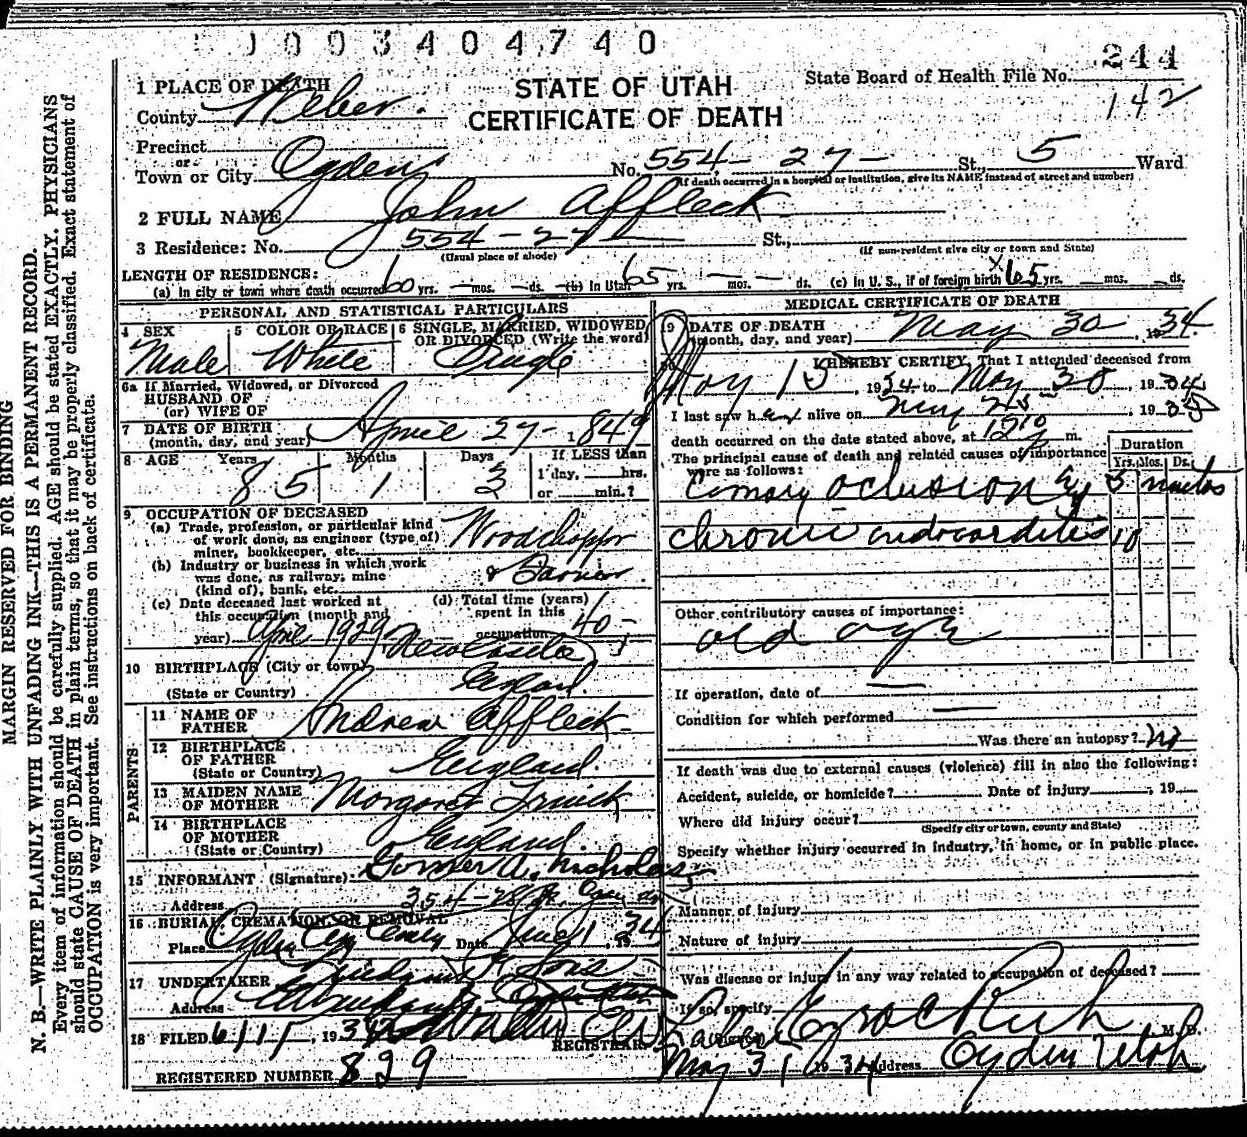 1003404740
244
STATE OF UTAH
CERTIFICATE OF DEATH
State Board of Health File No.
142
1 PLACE OF DEATH
County Weber.
Precinct
or
Town or City Ogden No. 554 - 27 - St., 5 Ward
(If death occurred in a hospital or institution, give its NAME instead of street and number)
2 FULL NAME John Affleck
3 Residence: No. 554 - 27 - St.,
(Usual place of abode) (If non-resident give city or town and State)
LENGTH OF RESIDENCE:
(a) In city or town where death occurred 60 yrs. — mos. — ds. (b) In Utah 65 yrs. — mos. — ds. (c) In U. S., if of foreign birth 65 yrs. mos. ds.
PERSONAL AND STATISTICAL PARTICULARS
4 SEX Male
5 COLOR OR RACE White
6 SINGLE, MARRIED, WIDOWED
OR DIVORCED (Write the word)
Single
6a If Married, Widowed, or Divorced
HUSBAND OF
(or) WIFE OF
7 DATE OF BIRTH
(month, day, and year) April 27 - 1849
8 AGE Years 85 Months 1 Days 3
If LESS than
1 day, hrs.
or min.?
9 OCCUPATION OF DECEASED
(a) Trade, profession, or particular kind
of work done, as engineer (type of)
miner, bookkeeper, etc. Woodchopper
(b) Industry or business in which work
was done, as railway, mine
(kind of), bank, etc.
(c) Date deceased last worked at
this occupation (month and
year) April 1929
(d) Total time (years)
spent in this
occupation 40 -
10 BIRTHPLACE (City or town)
(State or Country) England
PARENTS
11 NAME OF
FATHER Andrew Affleck
12 BIRTHPLACE
OF FATHER
(State or Country) England
13 MAIDEN NAME
OF MOTHER Margaret
14 BIRTHPLACE
OF MOTHER
(State or Country) England
15 INFORMANT (Signature): A. Nicholas
Address
16 BURIAL, CREMATION, OR REMOVAL
Place Ogden City Date June 1, 1934
17 UNDERTAKER & Sons
Address
18 FILED 6/1, 1934
REGISTRAR
REGISTERED NUMBER 829
MEDICAL CERTIFICATE OF DEATH
19 DATE OF DEATH
(month, day, and year) May 30, 1934
I HEREBY CERTIFY, That I attended deceased from
May 15 1934 to May 30, 1934
I last saw h alive on May, 19
death occurred on the date stated above, at m.
The principal cause of death and related causes of importance
were as follows:
Duration
Yrs. Mos. Ds.
oclusion 5
chronic endocarditis 10
Other contributory causes of importance:
old age
If operation, date of —
Condition for which performed —
Was there an autopsy? no
If death was due to external causes (violence) fill in also the following:
Accident, suicide, or homicide? Date of injury, 19
Where did injury occur?
(Specify city or town, county and State)
Specify whether injury occurred in industry, in home, or in public place.
Manner of injury
Nature of injury
Was disease or injury in any way related to occupation of deceased?
If so, specify
M. D.
May 31 1934 Address Ogden Utah
MARGIN RESERVED FOR BINDING
N. B.—WRITE PLAINLY WITH UNFADING INK—THIS IS A PERMANENT RECORD.
Every item of information should be carefully supplied. AGE should be stated EXACTLY. PHYSICIANS
should state CAUSE OF DEATH in plain terms, so that it may be properly classified. Exact statement of
OCCUPATION is very important. See instructions on back of certificate.